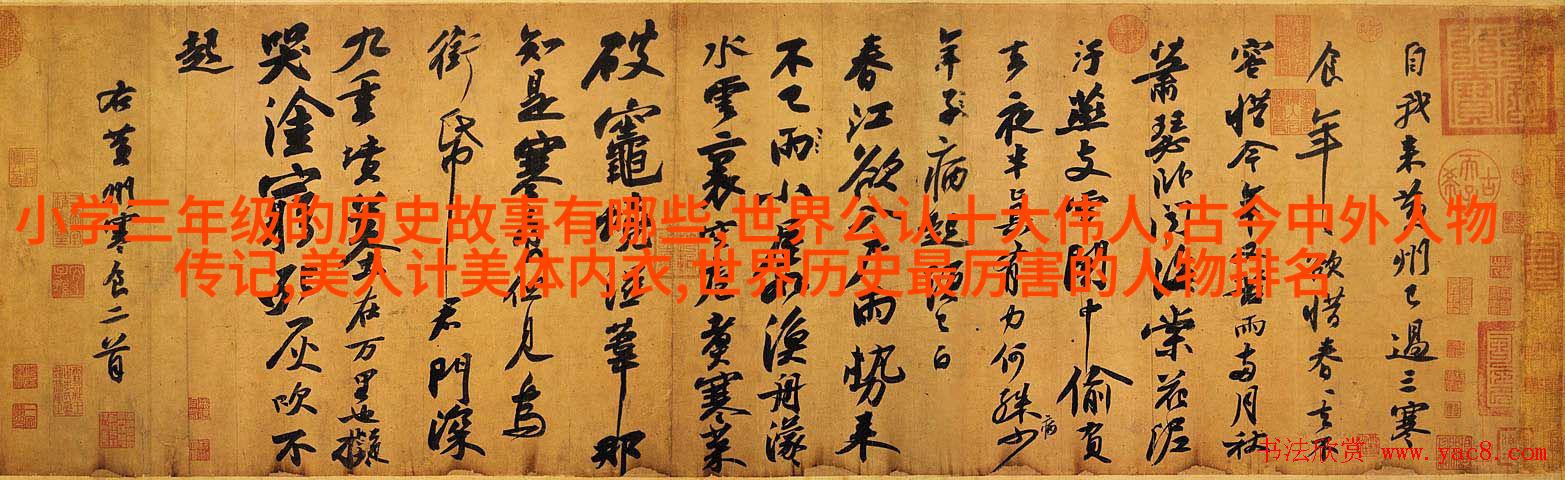 小学三年级的历史故事有哪些,世界公认十大伟人,古今中外人物
传记,美人计美体内衣,世界历史最厉害的人物排名
自我来黄州已過三寒
食年〻欲惜春〻去不
容惜今年又苦雨兩月秋
蕭瑟卧聞海棠花泥
汙燕支雪闇中偷負
去夜半真有力何殊少
病
年子病起頭已白
春江欲入户雨勢来
不已雨小屋如漁舟濛
水雲裏空庖煑寒菜
破竈燒濕葦那
知是寒食但見烏
銜帋君門深
九重墳墓在万里也擬
哭塗窮死灰吹不
起
右黄州寒食二首
书法欣赏 www.yac8.com